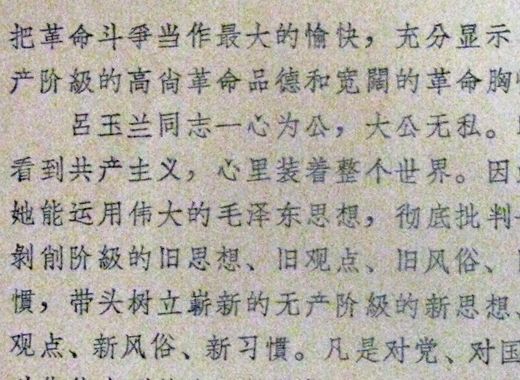 把革命斗爭当作最大的愉快，充分显示
产阶級的高尙革命品德和宽闊的革命胸
呂玉兰同志一心为公，大公无私。
看到共产主义，心里装着整个世界。因
她能运用伟大的毛泽东思想，彻底批判
剝削阶級的旧思想、旧观点、旧风俗、
慣，带头树立嶄新的无产阶級的新思想、
观点、新风俗、新习慣。凡是对党、对国